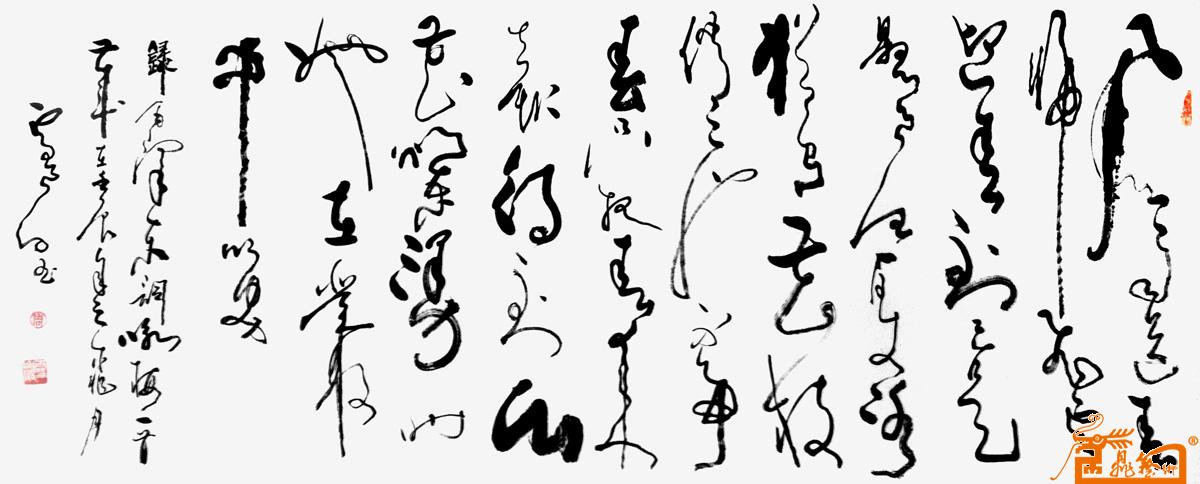 风雨送春
归飞雪
迎春到已是
悬崖百丈冰
犹有花枝
俏俏也不争
春只把春来
报待到山
花烂漫时
她在丛
中笑
録毛泽东词咏梅一首